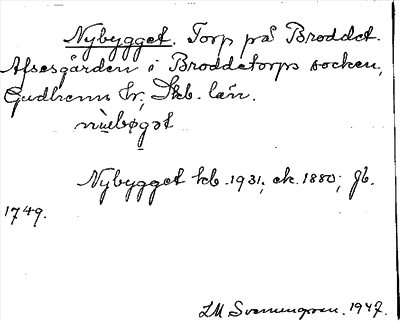 Nybygget. Torp på Broddet.
Afsesgården i Broddetorps socken,
Gudhems hr, Skb. län.
Nybygget kb. 1931, ek. 1880, jb.
1749.
LM Svennengren. 1947.